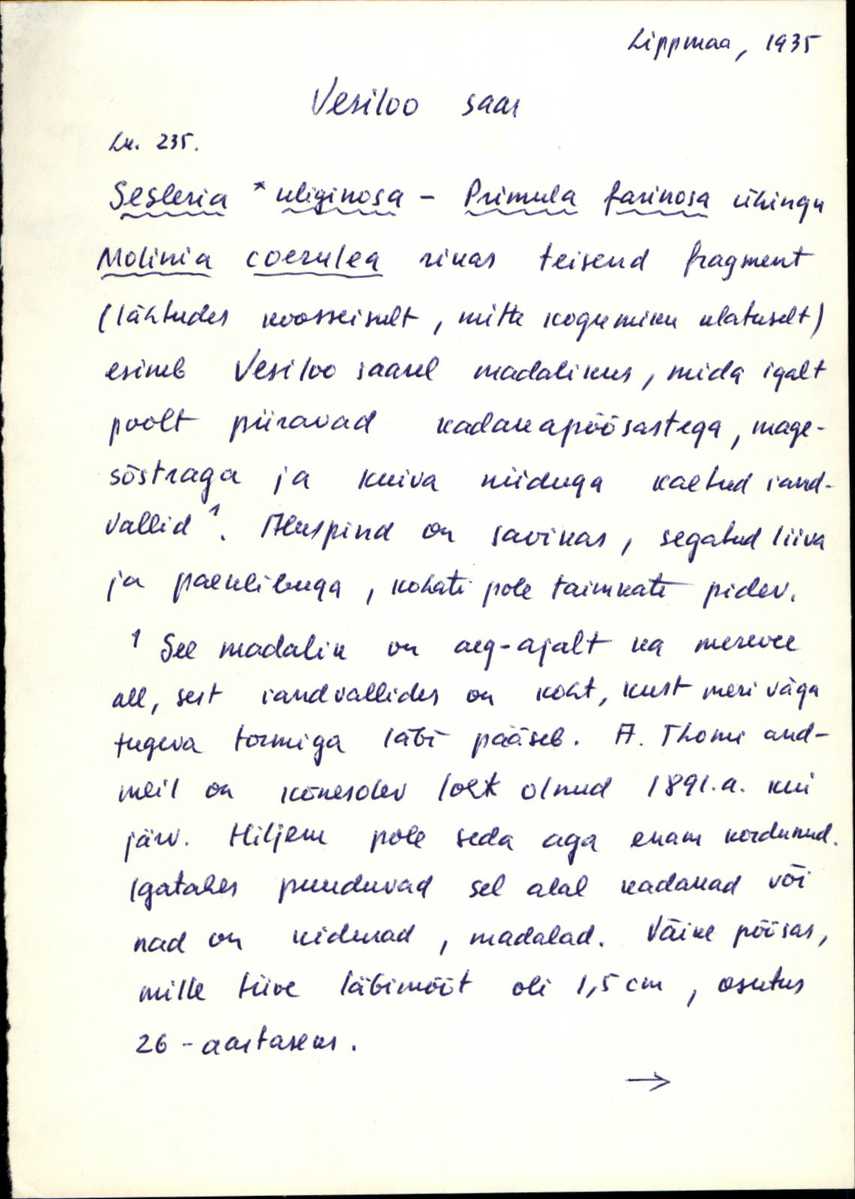 Lippmaa, 1935
Vesiloo saar
Lk. 235.
Sesleria *uliginosa - Primula farinosa ühingu
Molinia coerulea rikas teisend fragment
(lähtudes koosseisult, mitte kogumiku ulatuselt)
esineb Vesiloo saarel madalikus, mida igalt
poolt piiravad kadakapõõsastega, mage-
sõstraga ja kuiva niiduga kaetud rand-
vallid¹. Aluspind on savikas, segatud liiva
ja paeklibuga, kohati pole taimkate pidev.
¹ See madalik on aeg-ajalt ka merevee
all, sest randvallides on koht, kust meri väga
tugeva tormiga läbi pääseb. A. Thomi and-
meil on kõnesolev lohk olnud 1891.a. kui
järv. Hiljem pole seda aga enam kordunud.
Igatahes puuduvad sel alal kadakad või
nad on kidurad, madalad. Väike põõsas,
mille tüve läbimõõt oli 1,5 cm, osutus
26-aastaseks.
→